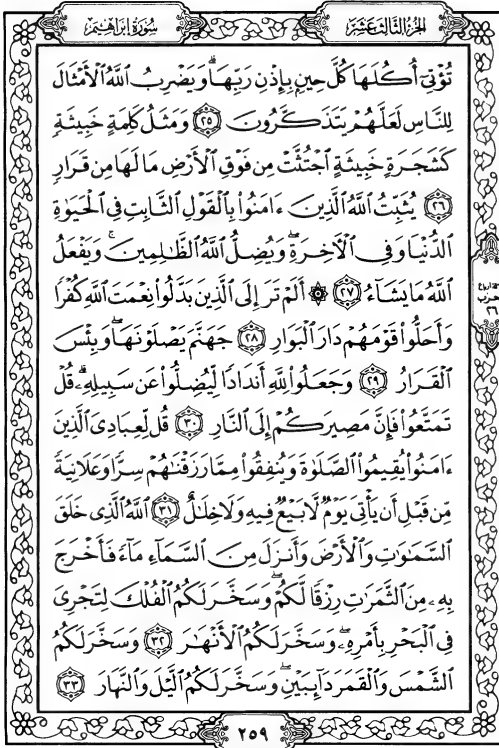 سُورَةُ إِبْرَاهِيمَ
الجُزْءُ الثَّالِثَ عَشَرَ
تُؤْتِىٓ أُكُلَهَا كُلَّ حِينٍۭ بِإِذْنِ رَبِّهَاۗ وَيَضْرِبُ ٱللَّهُ ٱلْأَمْثَالَ
لِلنَّاسِ لَعَلَّهُمْ يَتَذَكَّرُونَ ٢٥ وَمَثَلُ كَلِمَةٍ خَبِيثَةٍ
كَشَجَرَةٍ خَبِيثَةٍ ٱجْتُثَّتْ مِن فَوْقِ ٱلْأَرْضِ مَا لَهَا مِن قَرَارٍ
٢٦ يُثَبِّتُ ٱللَّهُ ٱلَّذِينَ ءَامَنُوا۟ بِٱلْقَوْلِ ٱلثَّابِتِ فِى ٱلْحَيَوٰةِ
ٱلدُّنْيَا وَفِى ٱلْءَاخِرَةِۖ وَيُضِلُّ ٱللَّهُ ٱلظَّٰلِمِينَۚ وَيَفْعَلُ
ٱللَّهُ مَا يَشَآءُ ٢٧ ۞ أَلَمْ تَرَ إِلَى ٱلَّذِينَ بَدَّلُوا۟ نِعْمَتَ ٱللَّهِ كُفْرًا
وَأَحَلُّوا۟ قَوْمَهُمْ دَارَ ٱلْبَوَارِ ٢٨ جَهَنَّمَ يَصْلَوْنَهَاۖ وَبِئْسَ
ٱلْقَرَارُ ٢٩ وَجَعَلُوا۟ لِلَّهِ أَندَادًا لِّيُضِلُّوا۟ عَن سَبِيلِهِۦۗ قُلْ
تَمَتَّعُوا۟ فَإِنَّ مَصِيرَكُمْ إِلَى ٱلنَّارِ ٣٠ قُل لِّعِبَادِىَ ٱلَّذِينَ
ءَامَنُوا۟ يُقِيمُوا۟ ٱلصَّلَوٰةَ وَيُنفِقُوا۟ مِمَّا رَزَقْنَٰهُمْ سِرًّا وَعَلَانِيَةً
مِّن قَبْلِ أَن يَأْتِىَ يَوْمٌ لَّا بَيْعٌ فِيهِ وَلَا خِلَٰلٌ ٣١ ٱللَّهُ ٱلَّذِى خَلَقَ
ٱلسَّمَٰوَٰتِ وَٱلْأَرْضَ وَأَنزَلَ مِنَ ٱلسَّمَآءِ مَآءً فَأَخْرَجَ
بِهِۦ مِنَ ٱلثَّمَرَٰتِ رِزْقًا لَّكُمْۖ وَسَخَّرَ لَكُمُ ٱلْفُلْكَ لِتَجْرِىَ
فِى ٱلْبَحْرِ بِأَمْرِهِۦۖ وَسَخَّرَ لَكُمُ ٱلْأَنْهَٰرَ ٣٢ وَسَخَّرَ لَكُمُ
ٱلشَّمْسَ وَٱلْقَمَرَ دَآئِبَيْنِۖ وَسَخَّرَ لَكُمُ ٱلَّيْلَ وَٱلنَّهَارَ ٣٣
٢٥٩